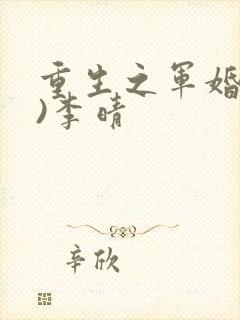 重生之军婚
)李晴
辛欣